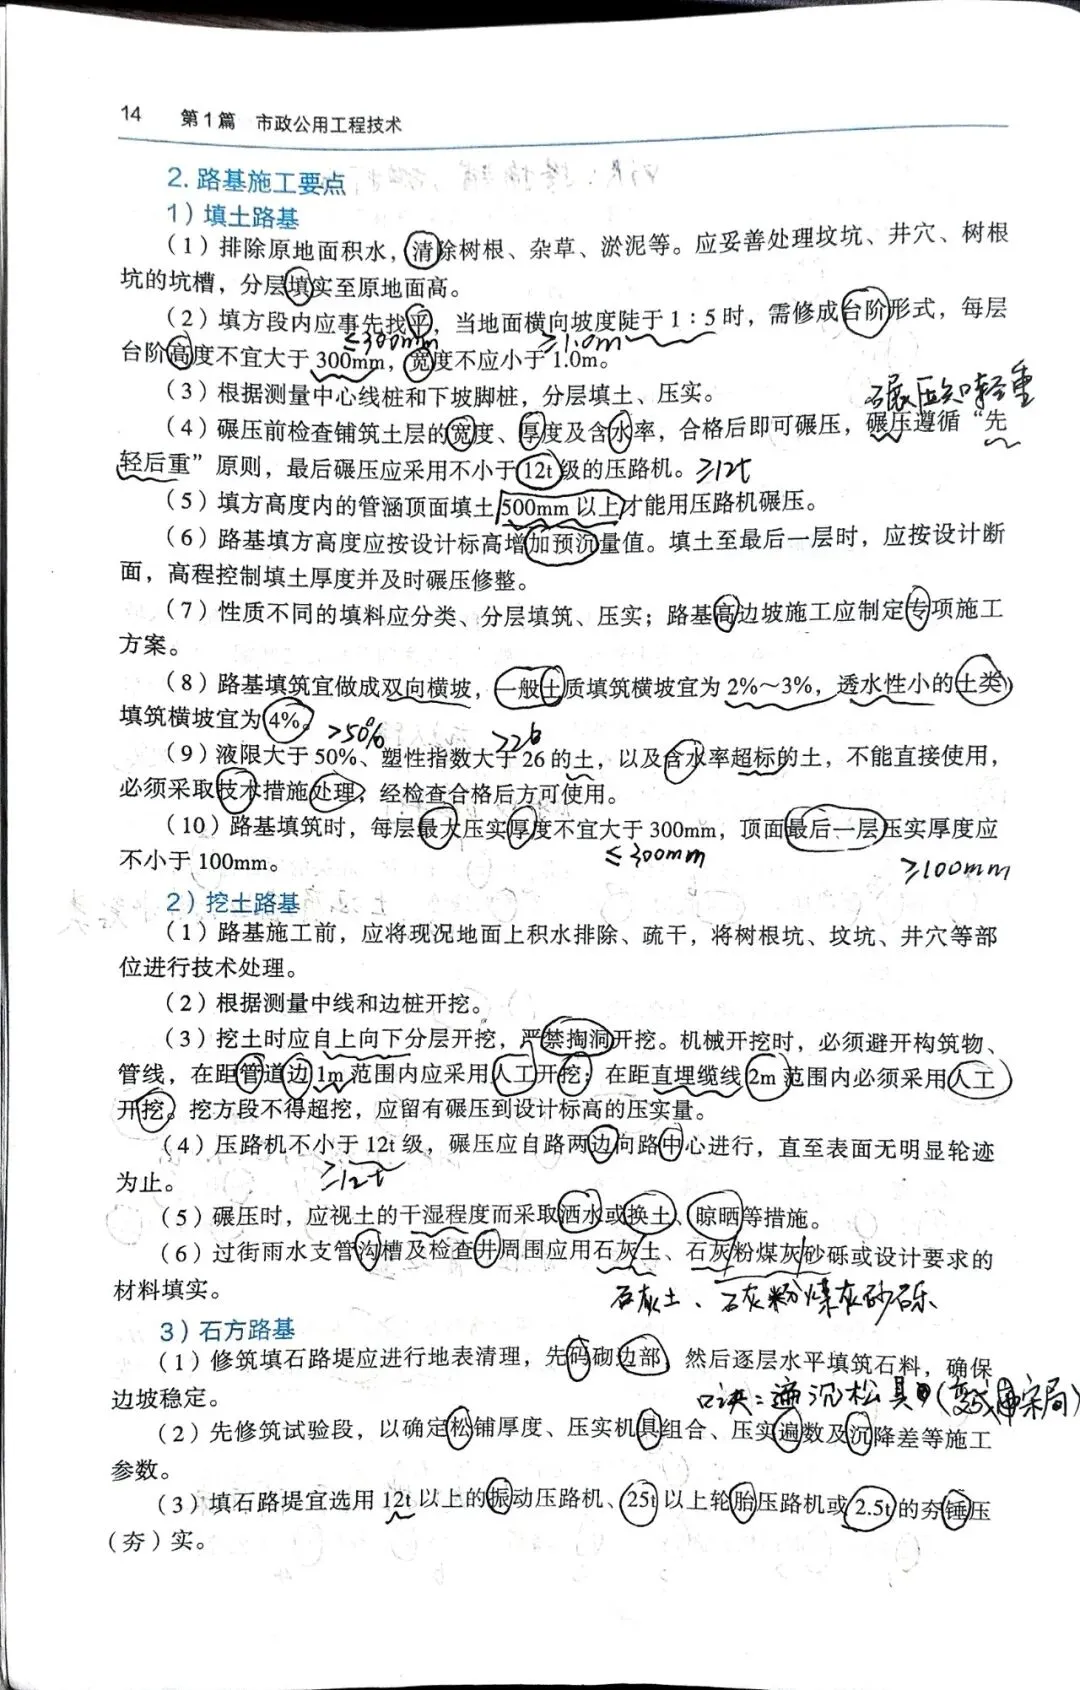 14 第1篇 市政公用工程技术
2. 路基施工要点
1）填土路基
（1）排除原地面积水，清除树根、杂草、淤泥等。应妥善处理坟坑、井穴、树根
坑的坑槽，分层填实至原地面高。
（2）填方段内应事先找平，当地面横向坡度陡于 1：5 时，需修成台阶形式，每层
≤300mm ≥1.0m
台阶高度不宜大于 300mm，宽度不应小于 1.0m。
（3）根据测量中心线桩和下坡脚桩，分层填土、压实。
碾压知轻重
（4）碾压前检查铺筑土层的宽度、厚度及含水率，合格后即可碾压，碾压遵循“先
轻后重”原则，最后碾压应采用不小于 12t 级的压路机。 ≥12t
（5）填方高度内的管涵顶面填土 500mm 以上才能用压路机碾压。
（6）路基填方高度应按设计标高增加预沉量值。填土至最后一层时，应按设计断
面，高程控制填土厚度并及时碾压修整。
（7）性质不同的填料应分类、分层填筑、压实；路基高边坡施工应制定专项施工
方案。
（8）路基填筑宜做成双向横坡，一般土质填筑横坡宜为 2%～3%，透水性小的土类
填筑横坡宜为 4%。
>50% >26
（9）液限大于 50%、塑性指数大于 26 的土，以及含水率超标的土，不能直接使用，
必须采取技术措施处理，经检查合格后方可使用。
（10）路基填筑时，每层最大压实厚度不宜大于 300mm，顶面最后一层压实厚度应
不小于 100mm。
≤300mm ≥100mm
2）挖土路基
（1）路基施工前，应将现况地面上积水排除、疏干，将树根坑、坟坑、井穴等部
位进行技术处理。
（2）根据测量中线和边桩开挖。
（3）挖土时应自上向下分层开挖，严禁掏洞开挖。机械开挖时，必须避开构筑物、
管线，在距管道边 1m 范围内应采用人工开挖；在距直埋缆线 2m 范围内必须采用人工
开挖。挖方段不得超挖，应留有碾压到设计标高的压实量。
（4）压路机不小于 12t 级，碾压应自路两边向路中心进行，直至表面无明显轮迹
为止。
≥12t
（5）碾压时，应视土的干湿程度而采取洒水或换土、晾晒等措施。
（6）过街雨水支管沟槽及检查井周围应用石灰土、石灰粉煤灰砂砾或设计要求的
材料填实。
石灰土、石灰粉煤灰砂砾
3）石方路基
（1）修筑填石路堤应进行地表清理，先码砌边部，然后逐层水平填筑石料，确保
边坡稳定。
口诀：遍沉松具
（2）先修筑试验段，以确定松铺厚度、压实机具组合、压实遍数及沉降差等施工
参数。
（3）填石路堤宜选用 12t 以上的振动压路机、25t 以上轮胎压路机或 2.5t 的夯锤压
（夯）实。